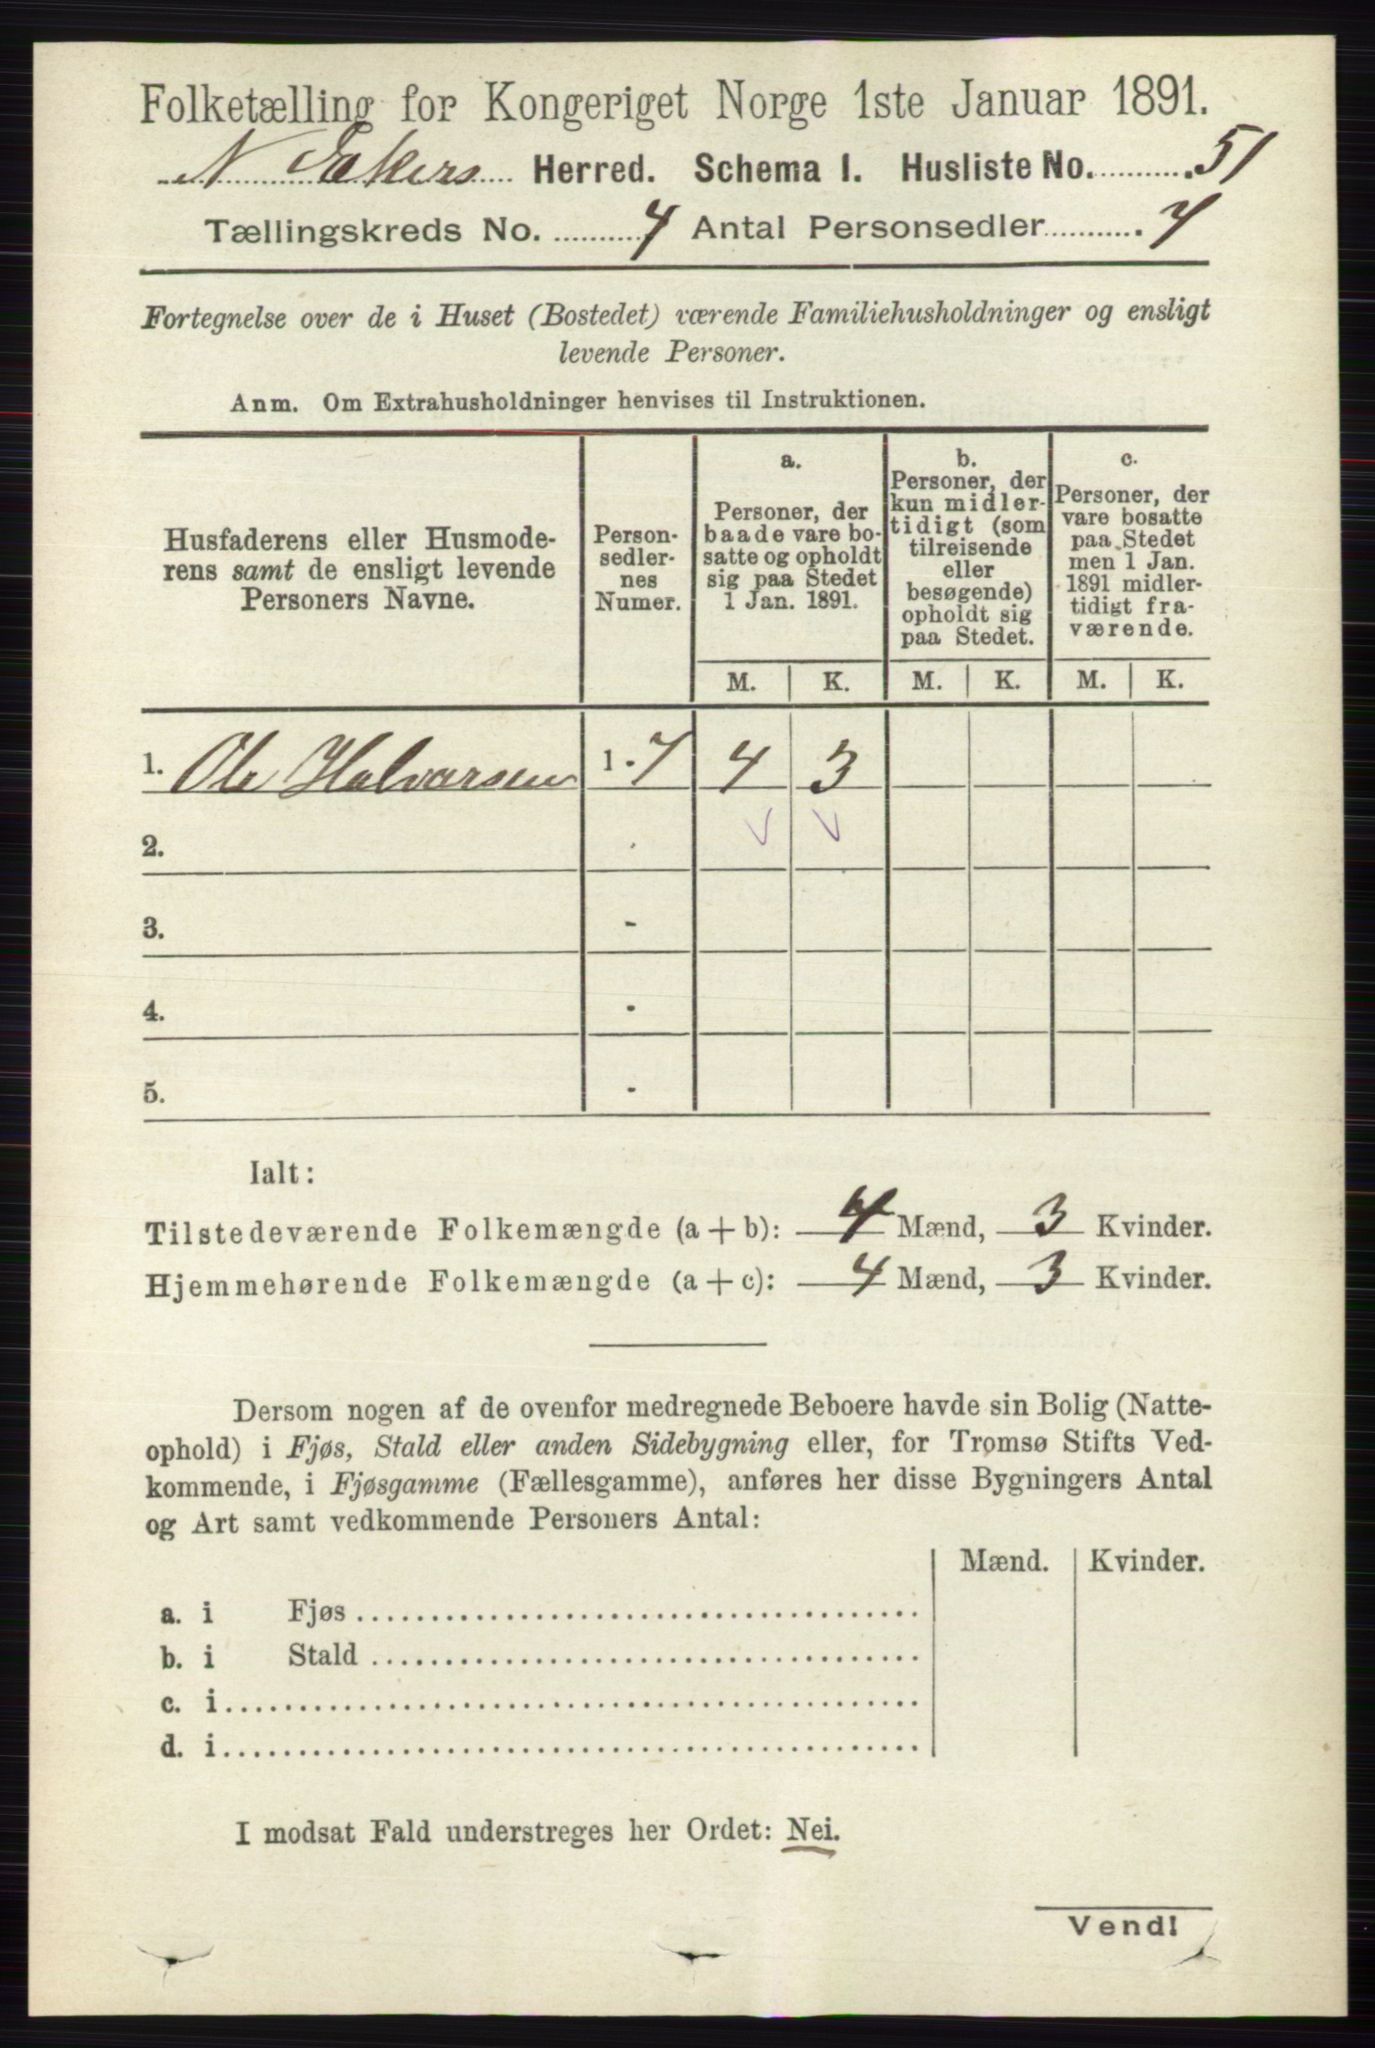 Folketælling for Kongeriget Norge 1ste Januar 1891.
N. Eekers Herred. Schema I. Husliste No. 51
Tællingskreds No. 7 Antal Personsedler 7
Fortegnelse over de i Huset (Bostedet) værende Familiehusholdninger og ensligt
levende Personer.
Anm. Om Extrahusholdninger henvises til Instruktionen.
Husfaderens eller Husmode-
rens samt de ensligt levende
Personers Navne.
Person-
sedler-
nes
Numer.
a.
Personer, der
baade vare bo-
satte og opholdt
sig paa Stedet
1 Jan. 1891.
b.
Personer, der
kun midler-
tidigt (som
tilreisende
eller
besøgende)
opholdt sig
paa Stedet.
c.
Personer, der
vare bosatte
paa Stedet
men 1 Jan.
1891 midler-
tidigt fra-
værende.
M. K. M. K. M. K.
1. Ole Halvorsen 1-7 4 3
2.
3. -
4. -
5. -
Ialt:
Tilstedeværende Folkemængde (a + b): 4 Mænd, 3 Kvinder.
Hjemmehørende Folkemængde (a + c): 4 Mænd, 3 Kvinder.
Dersom nogen af de ovenfor medregnede Beboere havde sin Bolig (Natte-
ophold) i Fjøs, Stald eller anden Sidebygning eller, for Tromsø Stifts Ved-
kommende, i Fjøsgamme (Fællesgamme), anføres her disse Bygningers Antal
og Art samt vedkommende Personers Antal:
Mænd. Kvinder.
a. i Fjøs
b. i Stald
c. i
d. i
I modsat Fald understreges her Ordet: Nei.
Vend!